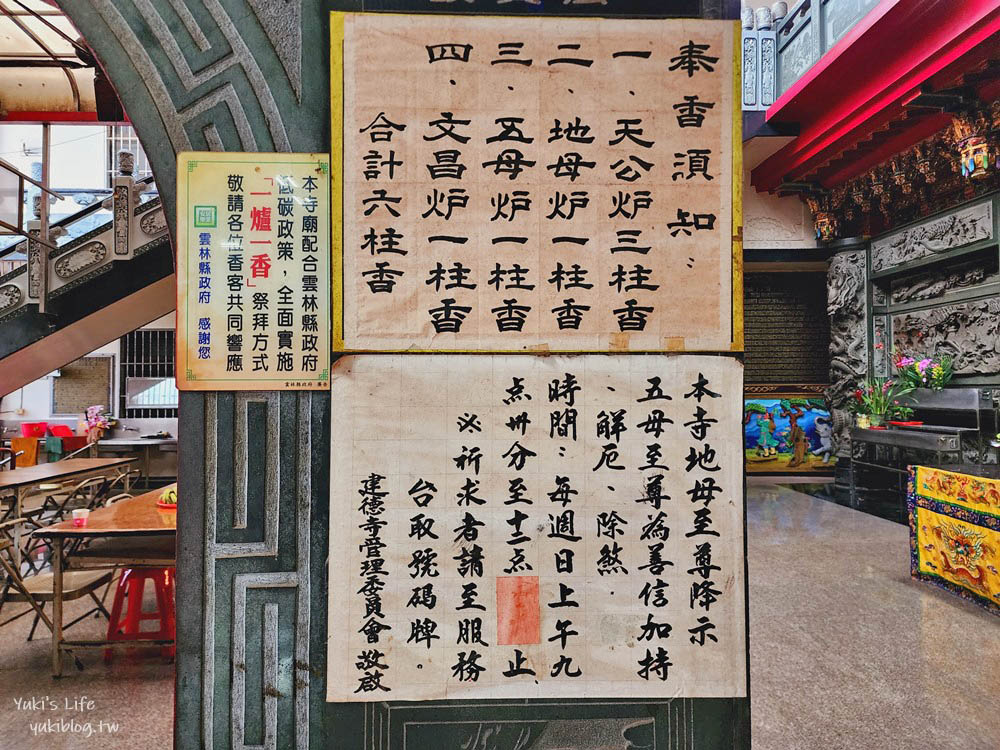 奉香須知：
一、天公炉三柱香
二、地母炉一柱香
三、五母炉一柱香
四、文昌炉一柱香
合計六柱香
本寺廟配合雲林縣政府
低碳政策，全面實施
「一爐一香」祭拜方式
敬請各位香客共同響應
雲林縣政府 感謝您
雲林縣政府 廣告
本寺地母至尊降示
五母至尊為善信加持
、解厄、除煞.
時間：每週日上午九
点卅分至十二点 止、
※祈求者請至服務
台取號碼牌。
建德寺管理委員會 敬啟
Yuki's Life
yukiblog.tw